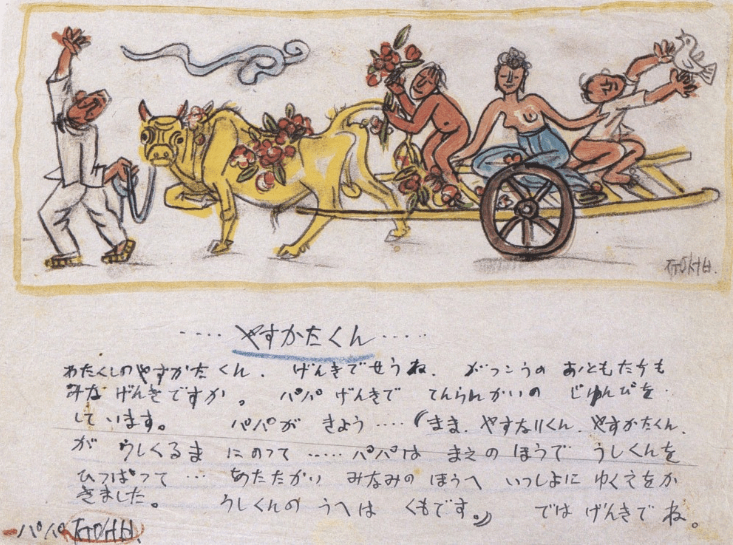 ㅈㅜㅇㅅㅓㅂ.
‥‥やすかたくん‥‥
わたくしのやすかたくん、げんきでせうね。がっこうのおともだちも
みなげんきですか。パパげんきでてんらんかいのじゅんびを
しています。パパがきょう‥‥(まま、やすなりくん、やすかたくん、
がうしくるまにのって‥‥パパはまえのほうでうしくんを
ひっぱって…あたたかいみなみのほうへいっしよにゆくえをか
きました。うしくんのうへはくもです。)ではげんきでね。
パパㅈㅜㅇㅅㅓㅂ.